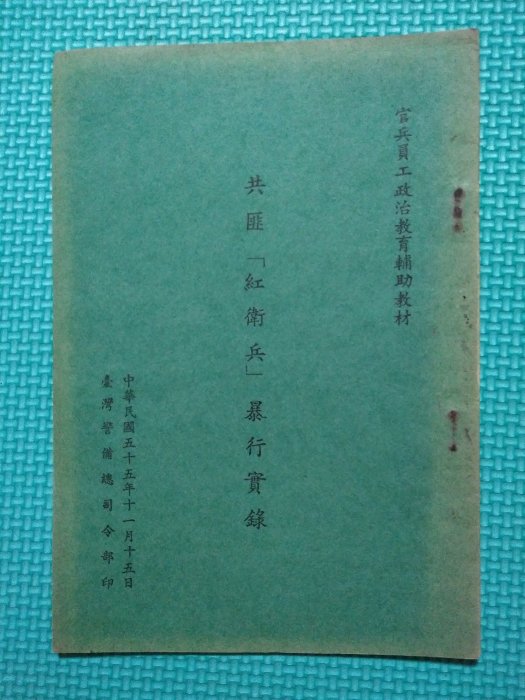 官兵員工政治教育輔助教材
共匪「紅衛兵」暴行實錄
中華民國五十五年十一月十五日
臺灣警備總司令部印